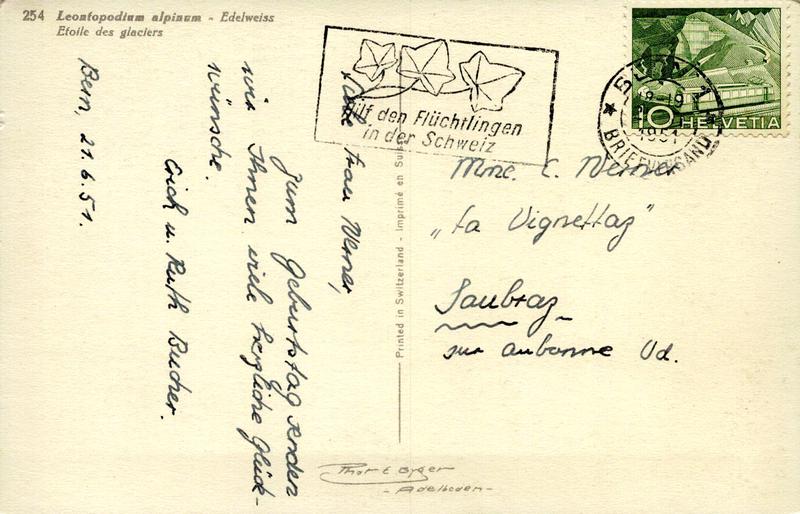 254 Leontopodium alpinum - Edelweiss
Etoile des glaciers
Hilf den Flüchtlingen
in der Schweiz
BERN 1
18-19
1951
BRIEFVERSAND
10 HELVETIA
Liebe Frau Werner,
Zum Geburtstag senden
wir Ihnen viele herzliche Glück-
wünsche.
Erich u. Ruth Bucher.
Bern, 21.6.51.
Printed in Switzerland - Imprimé en Suisse
Mme. E. Werner
„La Vignettaz"
Saubraz
sur Aubonne Vd.
Phot E Gyger
- Adelboden -